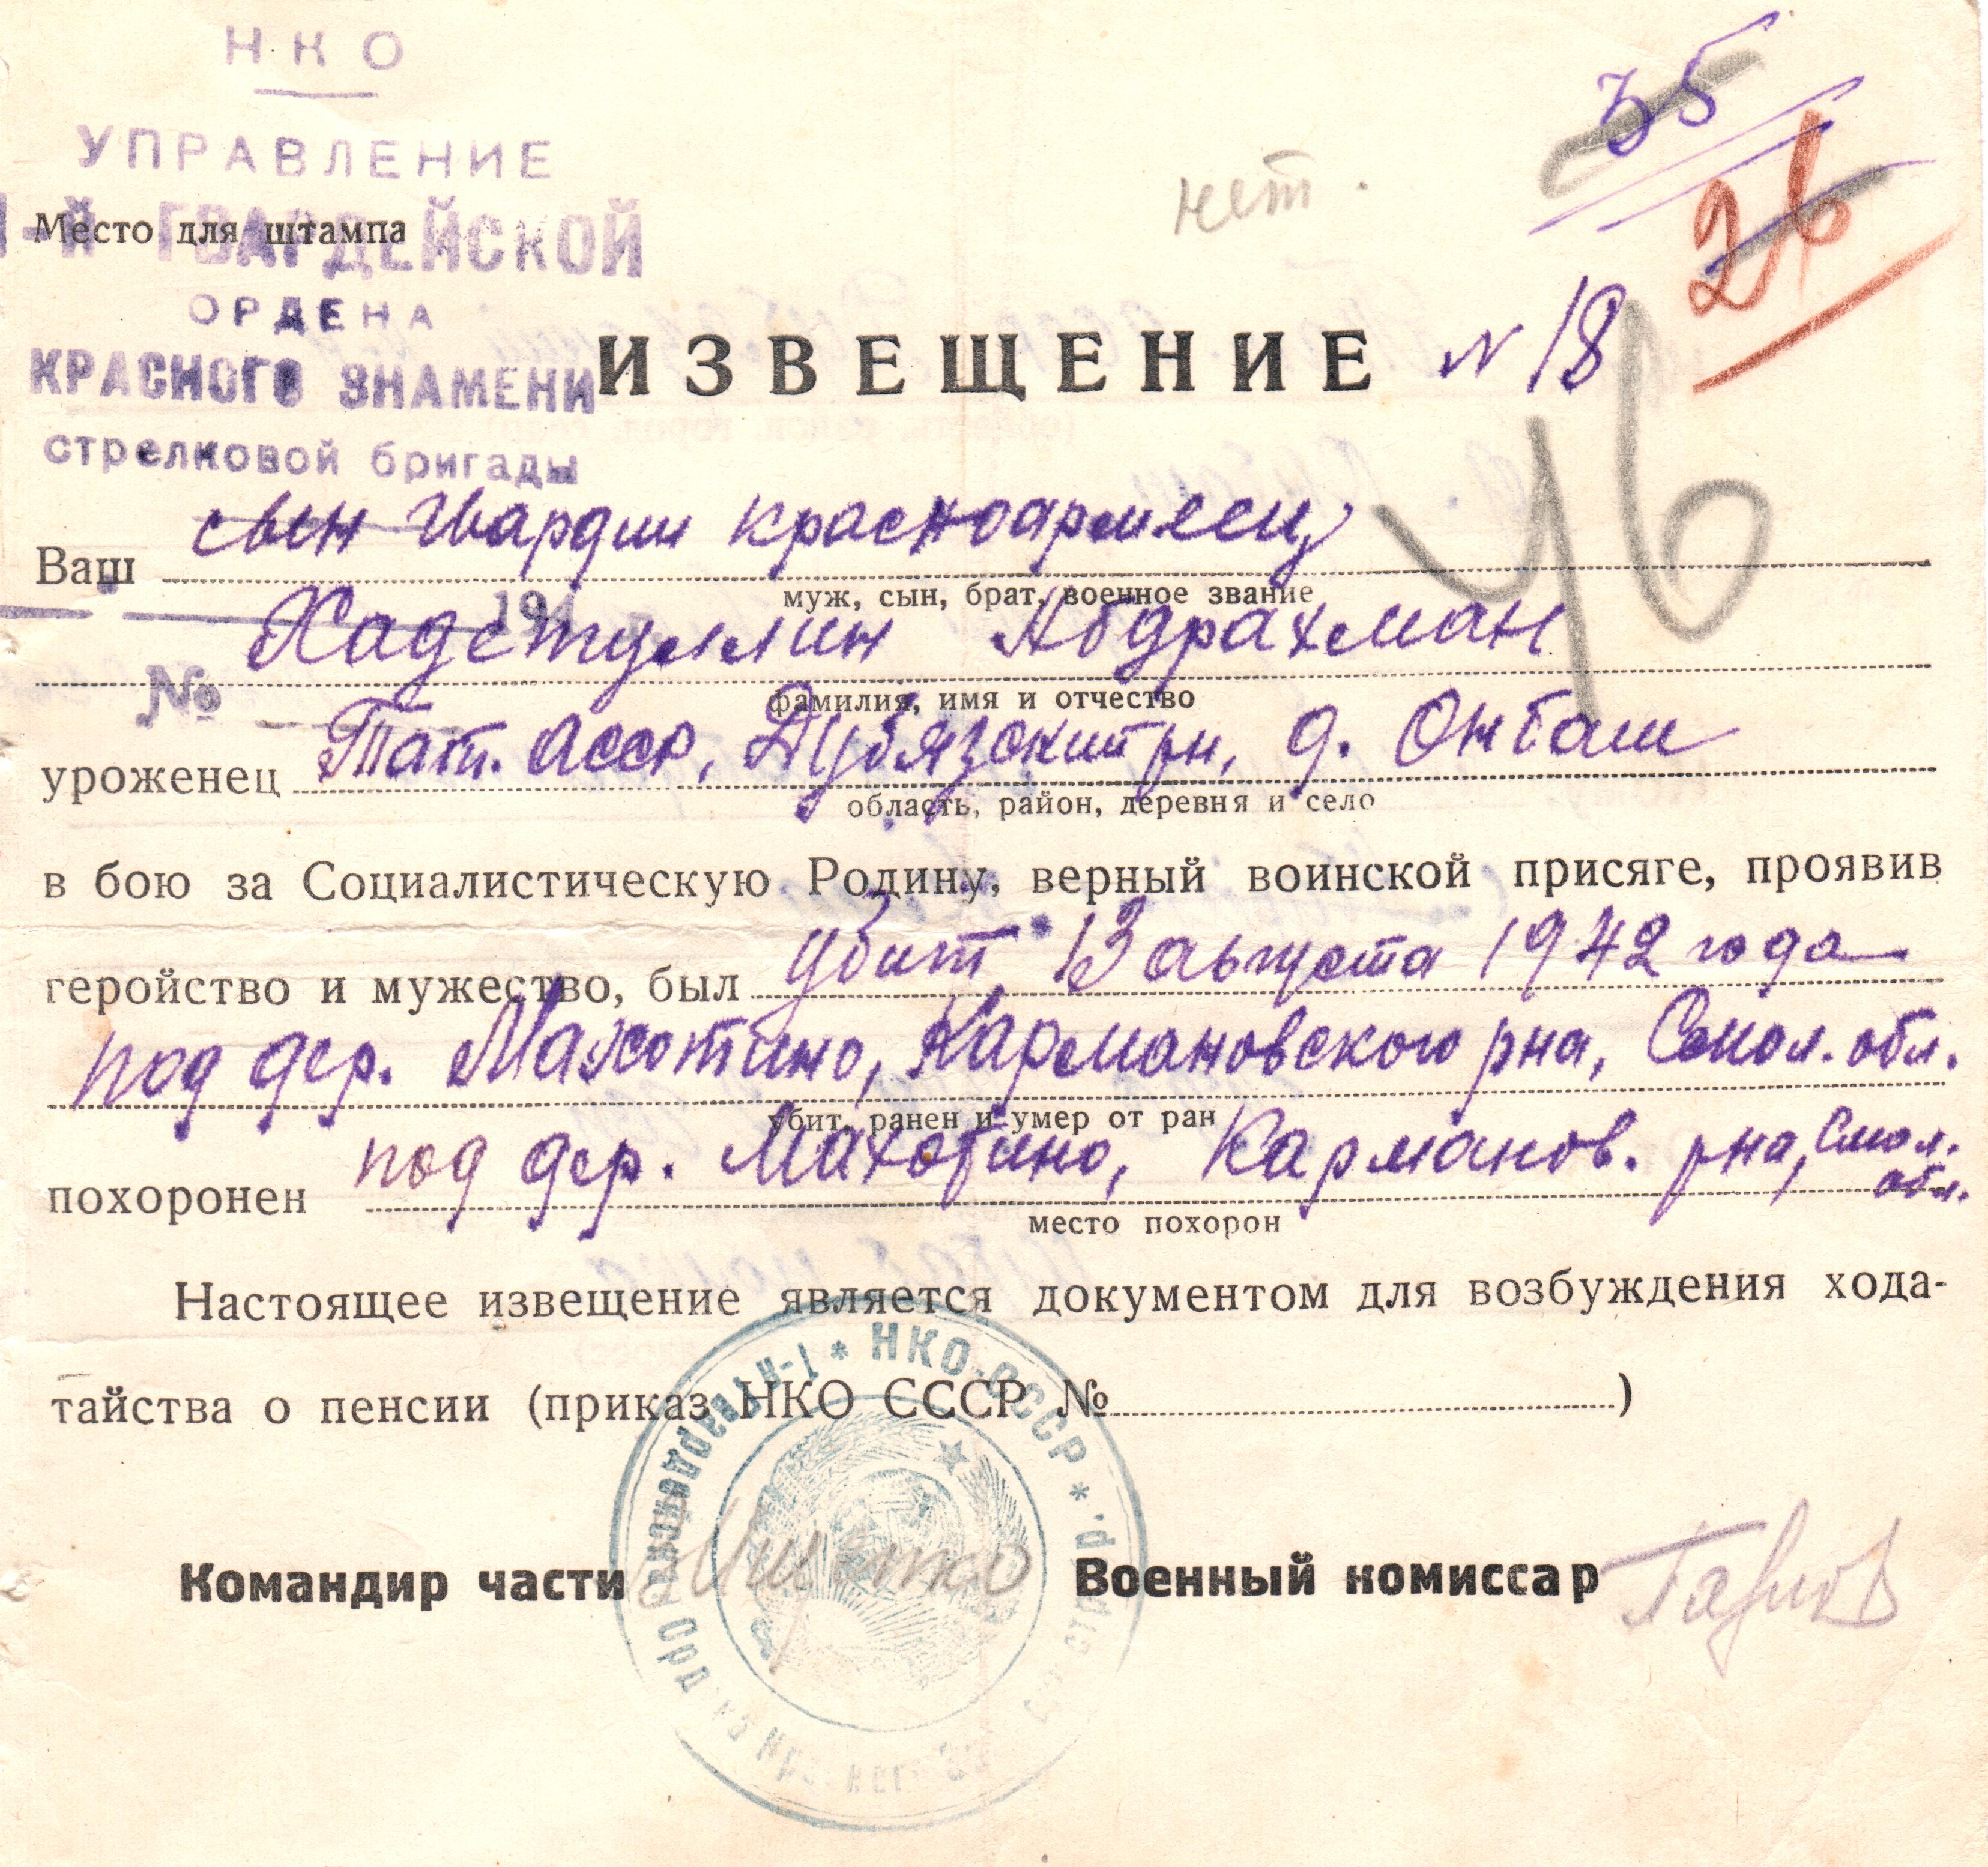 НКО
УПРАВЛЕНИЕ
1-й ГВАРДЕЙСКОЙ
ОРДЕНА
КРАСНОГО ЗНАМЕНИ
стрелковой бригады
Место для штампа
нет.
35
26
ИЗВЕЩЕНИЕ N 18
46
Ваш сын гвардии красноармеец
муж, сын, брат, военное звание
194
Хадетуллин Абдрахман
№
фамилия, имя и отчество
уроженец Тат. АССР, Дубязский рн, д. Онбаш
область, район, деревня и село
в бою за Социалистическую Родину, верный воинской присяге, проявив
геройство и мужество, был убит 13 августа 1942 года
под дер. Махотино, Кармановского рна, Смол. обл.
убит, ранен и умер от ран
похоронен под дер. Махотино, Карманов. рна, Смол. обл.
место похорон
Настоящее извещение является документом для возбуждения хода-
тайства о пенсии (приказ НКО СССР № )
* НКО-СССР * 1-я Гвардейская орд
Командир части
Военный комиссар